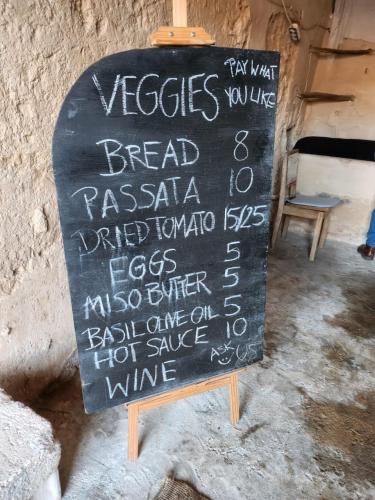 VEGGIES PAY WHAT YOU LIKE
BREAD 8
PASSATA 10
DRIED TOMATO 15/25
EGGS 5
MISO BUTTER 5
BASIL OLIVE OIL 5
HOT SAUCE 10
WINE ASK US